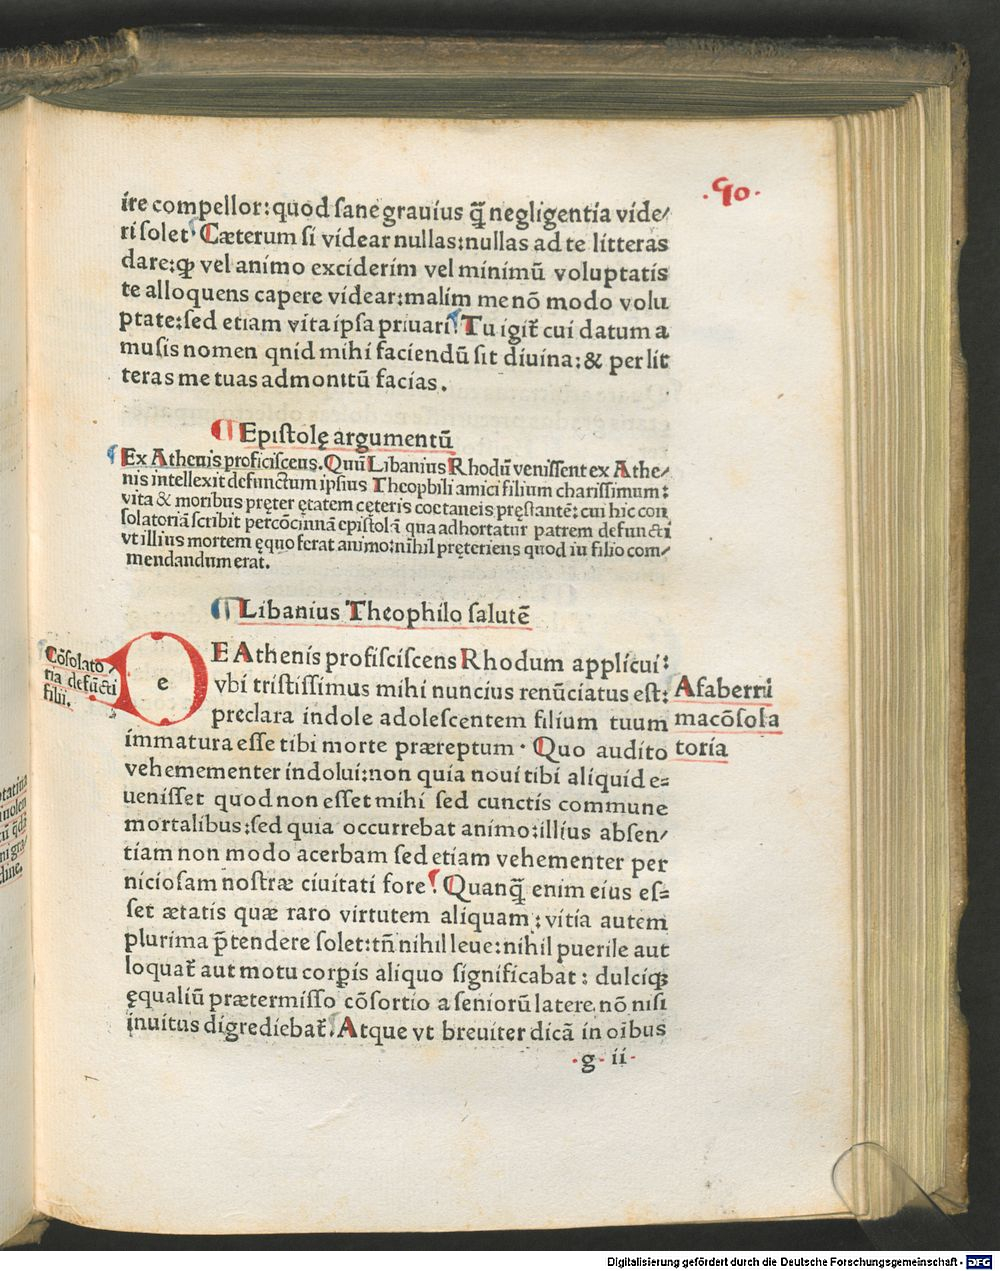 .90.
ire compellor: quod sane grauius q̃ negligentia vide/
ri solet. Cæterum si videar nullas: nullas ad te litteras
dare: ꝙ vel animo exciderim vel minimū voluptatis
te alloquens capere videar: malim me nō modo volu
ptate: sed etiam vita ipsa priuari. Tu igit̃ cui datum a
musis nomen qnid mihi faciendū sit diuina: & per lit
teras me tuas admonitū facias.
¶ Epistolę argumentū
Ex Athenis proficiscens. Quū Libanius Rhodū venissent ex Athe/
nis intellexit defunctum ipsius Theophili amici filium charissimum:
vita & moribus pręter ętatem cęteris coetaneis pręstantē: cui hic con
solatoriā scribit percōcinnā epistolā qua adhortatur patrem defuncti
vt illius mortem ęquo ferat animo: nihil pręteriens quod iu filio com/
mendandum erat.
¶ Libanius Theophilo salutē
Cōsolato/
ria defūcti
filii.
DE Athenis profisciscens Rhodum applicui:
vbi tristissimus mihi nuncius renūciatus est:
preclara indole adolescentem filium tuum
immatura esse tibi morte præreptum. Quo audito
vehemementer indolui: non quia noui tibi aliquid e=
uenisset quod non esset mihi sed cunctis commune
mortalibus: sed quia occurrebat animo: illius absen/
tiam non modo acerbam sed etiam vehementer per
niciosam nostræ ciuitati fore. Quanq̃ enim eius es=
set ætatis quæ raro virtutem aliquam: vitia autem
plurima p̃tendere solet: tñ nihil leue: nihil puerile aut
loquat̃ aut motu corꝑis aliquo significabat: dulciqꝫ
ęqualiū prætermisso cōsortio a seniorū latere nō nisi
inuitus digrediebat̃. Atque vt breuiter dicā in oĩbus
Afaberri
ma cōsola
toria
.g. ii.
Digitalisierung gefördert durch die Deutsche Forschungsgemeinschaft - DFG